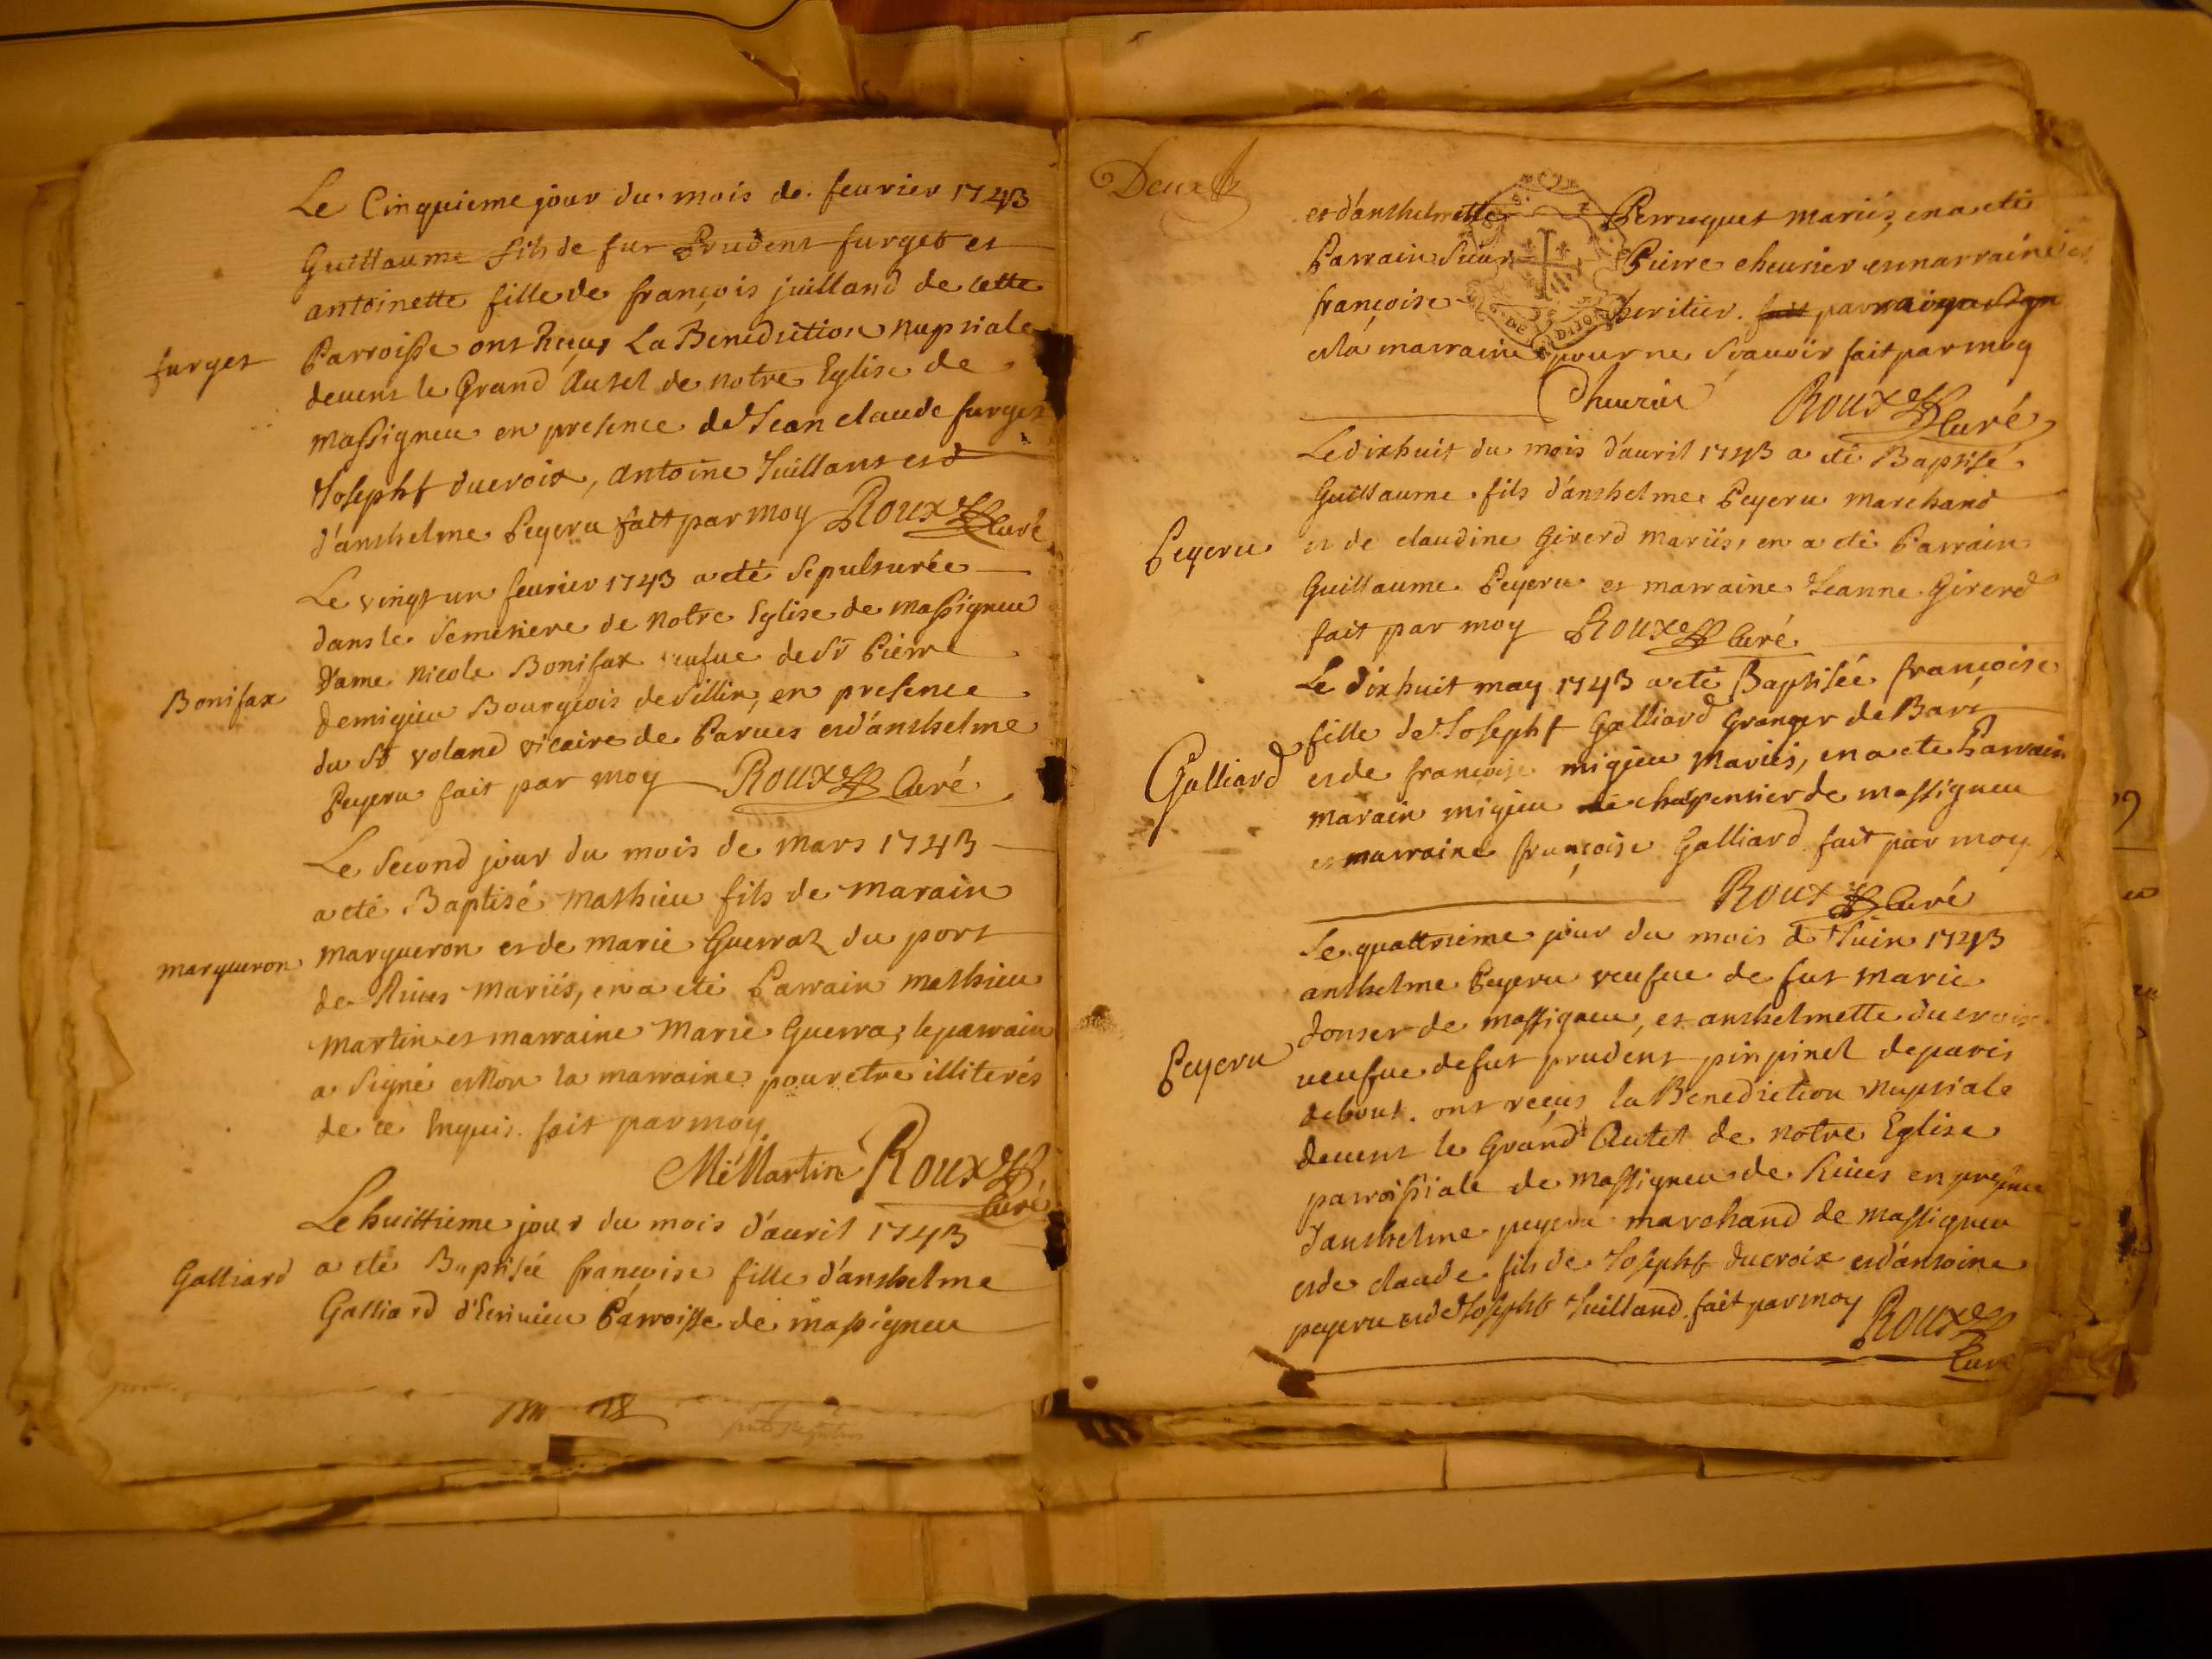 Le Cinquieme jour du mois de feurier 1743
Guillaume fils de fut Prudent furget et
antoinette fille de françois juilland de cette
furget
Parroisse ont Reçus La Benediction nuptiale
deuent le Grand Autel de notre Eglise de
Massigneu en presence de Jean claude furget
Josepht ducroix, antoine Juillant et d
d'anthelme Peyeru fait par moy Roux Curé
Le vingt un feurier 1743 a eté Sepulturée
dans le Semetiere de notre Eglise de massigneu
Bonifax
Dame Nicole Bonifax veufue de Sr Pierre
demigieu Bourgeois de Sillin, en presence
du Sr voland vicaire de Parues et d'anthelme
Peyeru fait par moy Roux Curé
Le Second jour du mois de Mars 1743
a eté Baptisé Mathieu fils de Marain
margueron
Margueron et de marie Guerraz du port
de Rives mariés, en a eté Parrain mathieu
Martin et marraine Marie Guerra, le parrain
a Signé et Non la marraine pour etre illiterés
de ce Enquis. fait par moy
MéMartin Roux Curé
Le huittieme jour du mois d'auril 1743
Galliard
a eté Baptisée françoise fille d'anthelme
Galliard d'Ecriuieu Parroisse de massigneu
Deux
et d'anthelmette Perruquet mariés, en a eté
Parrain Sieur Pierre cheurier et marraine
françoise heritier. fait parrain a Signé
et la marraine pour ne Scauoir fait par moy
G. DE DIJON
Cheurier Roux Curé
Le dixhuit du mois d'auril 1743 a eté Baptisé
Guillaume fils d'anthelme Peyeru Marchand
Peyeru
et de claudine Girerd mariés, en a eté Parrain
Guillaume Peyeru et marraine Jeanne Girerd
fait par moy Roux Curé
Le dixhuit may 1743 a eté Baptisée françoise
fille de Josepht Galliard Granger de Bart
Galliard
et de françoise migieu Mariés, en a ete Parrain
marain migieu charpentier de massigneu
et marraine françoise Galliard fait par moy
Roux Curé
Le quattrieme jour du mois de Juin 1743
anthelme Peyeru veufue de fut Marie
donser de Massigneu, et anthelmette ducroix
Peyeru
ueufue de fut prudent pinpinel de paris
debout. ont reçus la Benediction Nuptiale
deuent le Grand Autel de notre Eglise
parroissiale de Massigneu de Riues en presence
d'anthelme peyeru marchand de Massigneu
et de claude fils de Josepht Ducroix et d'antoine
peyeru et de Josepht Juilland. fait par moy Roux
Curé